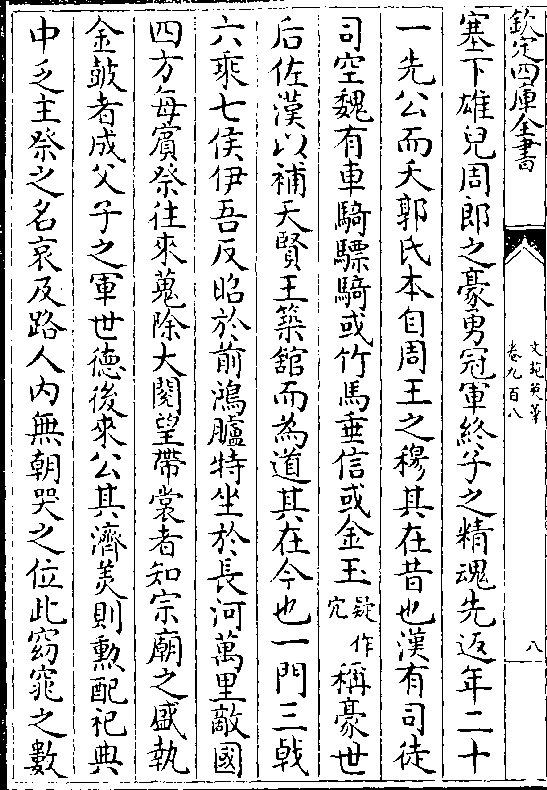 欽定四庫全書
文苑英華
卷九百八
八
塞下雄兒周郎之豪勇冠軍終子之精魂先返年二十
一先公而夭郭氏本自周王之穆其在昔也漢有司徒
司空魏有車騎驃騎或竹馬垂信或金玉疑作穴稱豪世
后佐漢以補天賢王築館而為道其在今也一門三戟
六乘七侯伊吾反昭於前鴻臚特坐於長河萬里敵國
四方每賓祭往來蒐除大閱望帶裳者知宗廟之盛執
金鼓者成父子之軍世德後來公其濟美則勲配祀典
中乏主祭之名哀及路人内無朝哭之位此窈窕之數